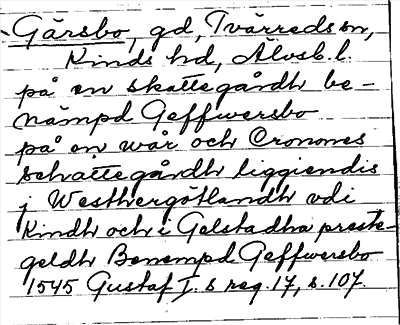 Gärsbo, gd, Tvärreds sn,
Kinds hd, Älvsb. l.
på en skattegårdh be-
nämpd Geffwersbo
på en wår och Cronones
schattegårdh liggiendis
j Westhergötlandh vdi
Kindh och i Gelstadha preste-
geldh Benempd Geffwersbo
1545 Gustaf I. s reg. 17, s. 107.